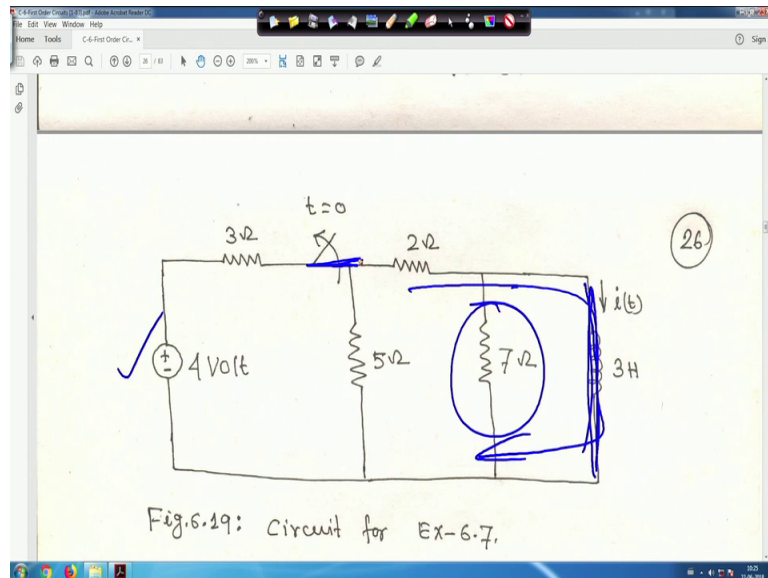 C-6-First Order Circuits (1-83).pdf - Adobe Acrobat Reader DC
File Edit View Window Help
Home Tools C-6-First Order Cir... × Sign
26 / 83 200%
t=0
3Ω 2Ω 26
i(t)
4 Volt 5Ω 7Ω 3H
Fig.6.19: Circuit for Ex-6.7.
10:25